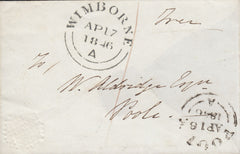 WIMBORNE
AP 17
1846
A
To,
W. Aldridge Esqr
Poole
POOLE
AP 18
1846
A